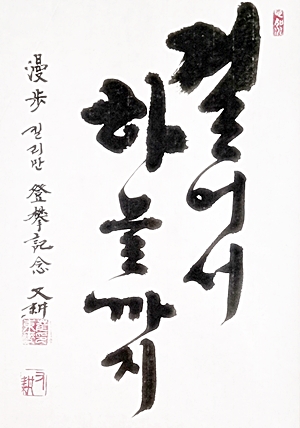 걸어서
하늘까지
漫步 킬리만 登攀記念 又耕